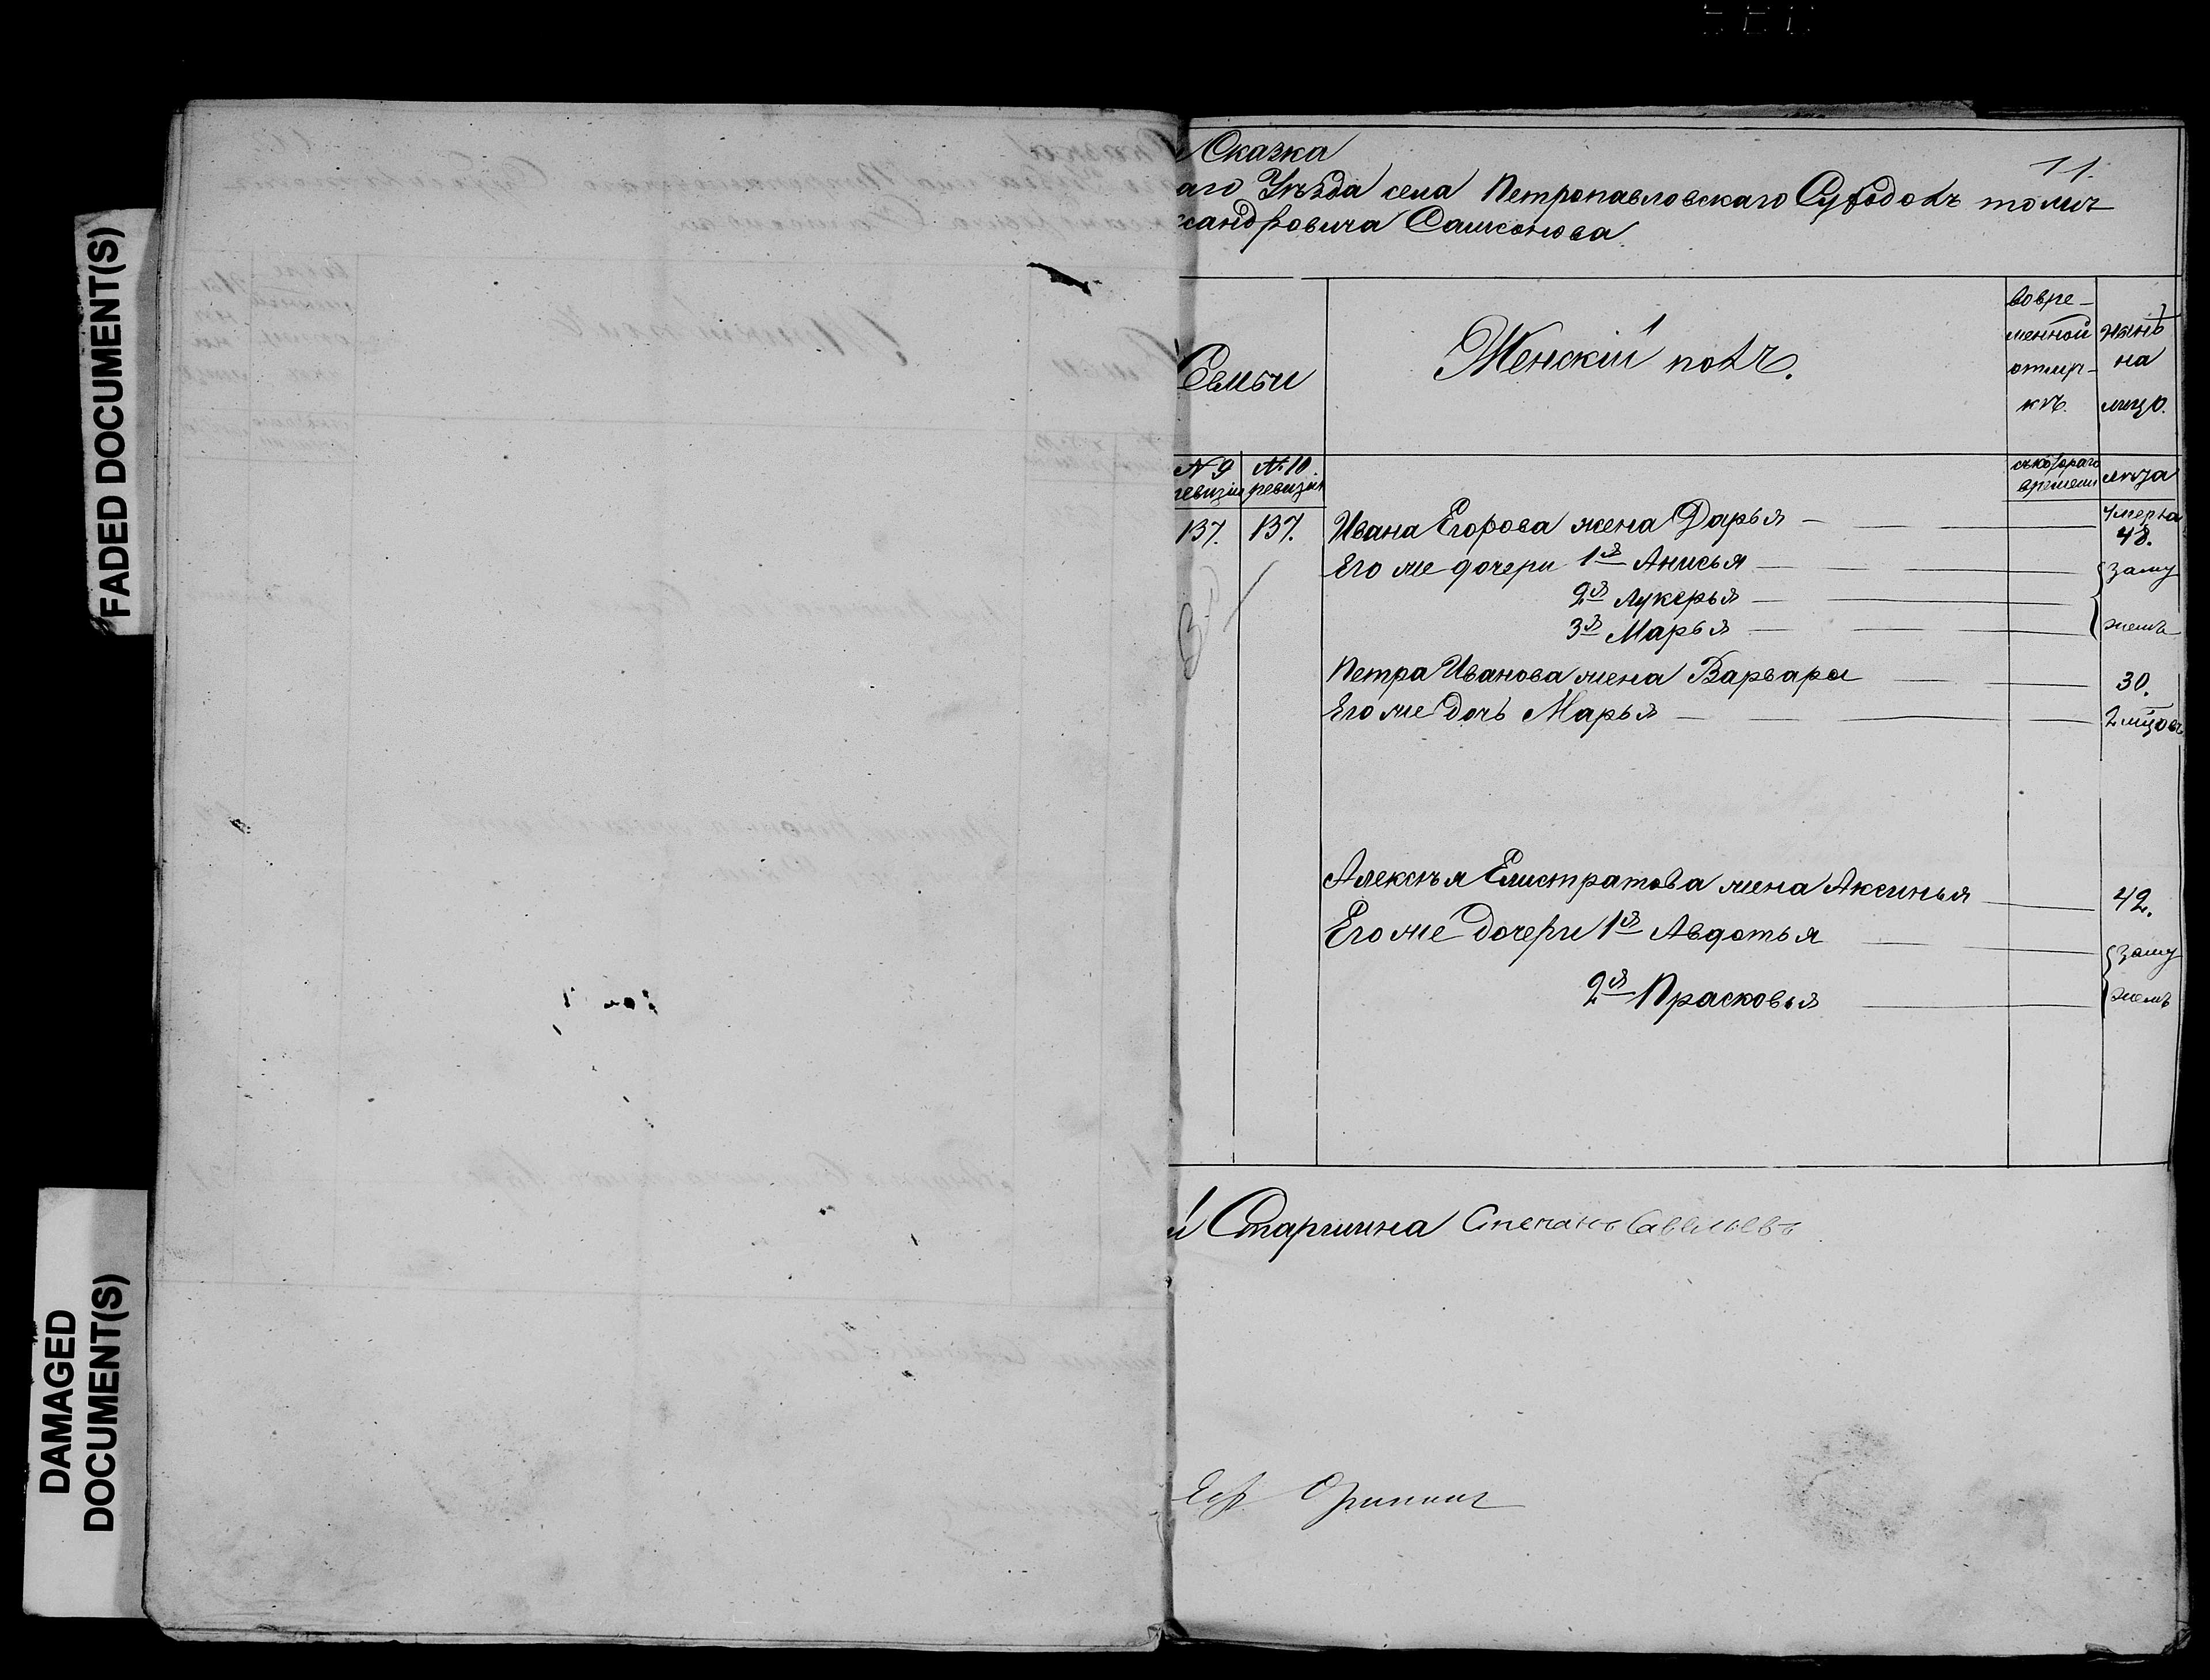 FADED DOCUMENT(S)
DAMAGED
DOCUMENT(S)
11.
Сказка
аго Уѣзда села Петропавловскаго Суходолъ тожъ
сандровича Самсонова
Семьи
Женскій полъ.
вовре-
менной
отлуч-
кѣ.
нынѣ
на
лицо.
№ 9
ревизіи
№ 10.
ревизіи
съ котораго
времени
лѣта
137.
137.
Ивана Егорова жена Дарья
умерла
48.
Его же дочери 1я Анисья
2я Лукерья
3я Марья
заму
жемъ
Петра Иванова жена Варвара
30.
Его же дочь Марья
2 мѣсяцовъ
Алексѣя Елистратова жена Аксинья
42.
Его же дочери 1я Авдотья
2я Прасковья
заму
жемъ
Старшина Степанъ Савельевъ